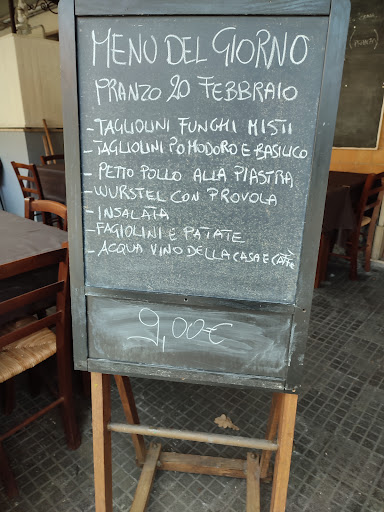 MENU DEL GIORNO
PRANZO 20 FEBBRAIO
- TAGLIOLINI FUNGHI MISTI
- TAGLIOLINI POMODORO E BASILICO
- PETTO POLLO ALLA PIASTRA
- WURSTEL CON PROVOLA
- INSALATA
- FAGIOLINI E PATATE
- ACQUA VINO DELLA CASA E CAFFÈ
9,00€